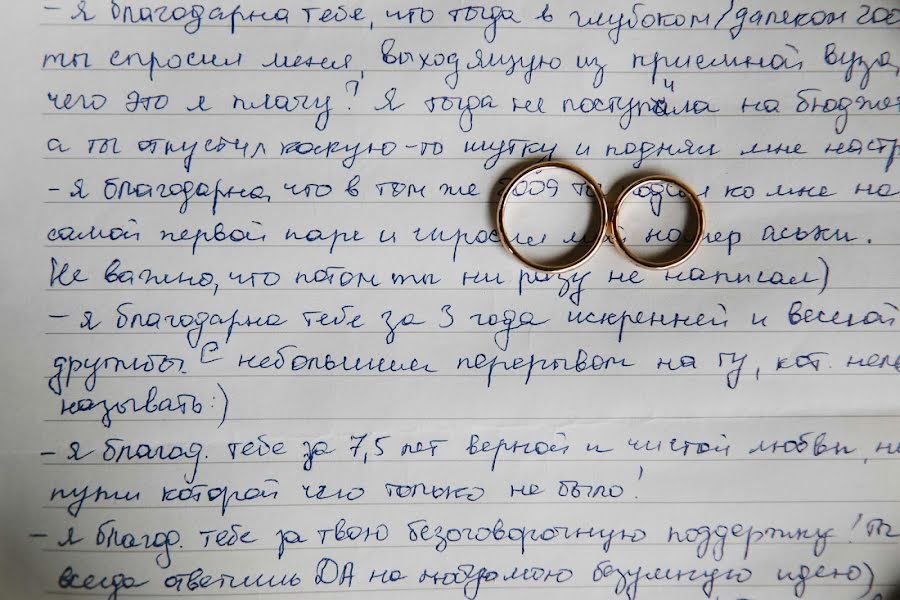 - я благодарна тебе, что тогда в глубоком/далеком 200
ты спросил меня, выходящую из приемной вуза,
чего это я плачу? Я тогда не поступила на бюджет
а ты отпустил какую-то шутку и поднял мне настр
- я благодарна, что в том же 2009 ко мне на
самой первой паре и спросил мой номер аськи.
Не важно, что потом ты ни разу не написал)
- я благодарна тебе за 3 года искренней и веселой
дружбы. С небольшим перерывом на ту, кот. нель
называть:)
- я благод. тебе за 7,5 лет верной и чистой любви, на
пути которой чего только не было!
- я благод. тебе за твою безоговорочную поддержку! Ты
всегда ответишь ДА на любую мою безумную идею)